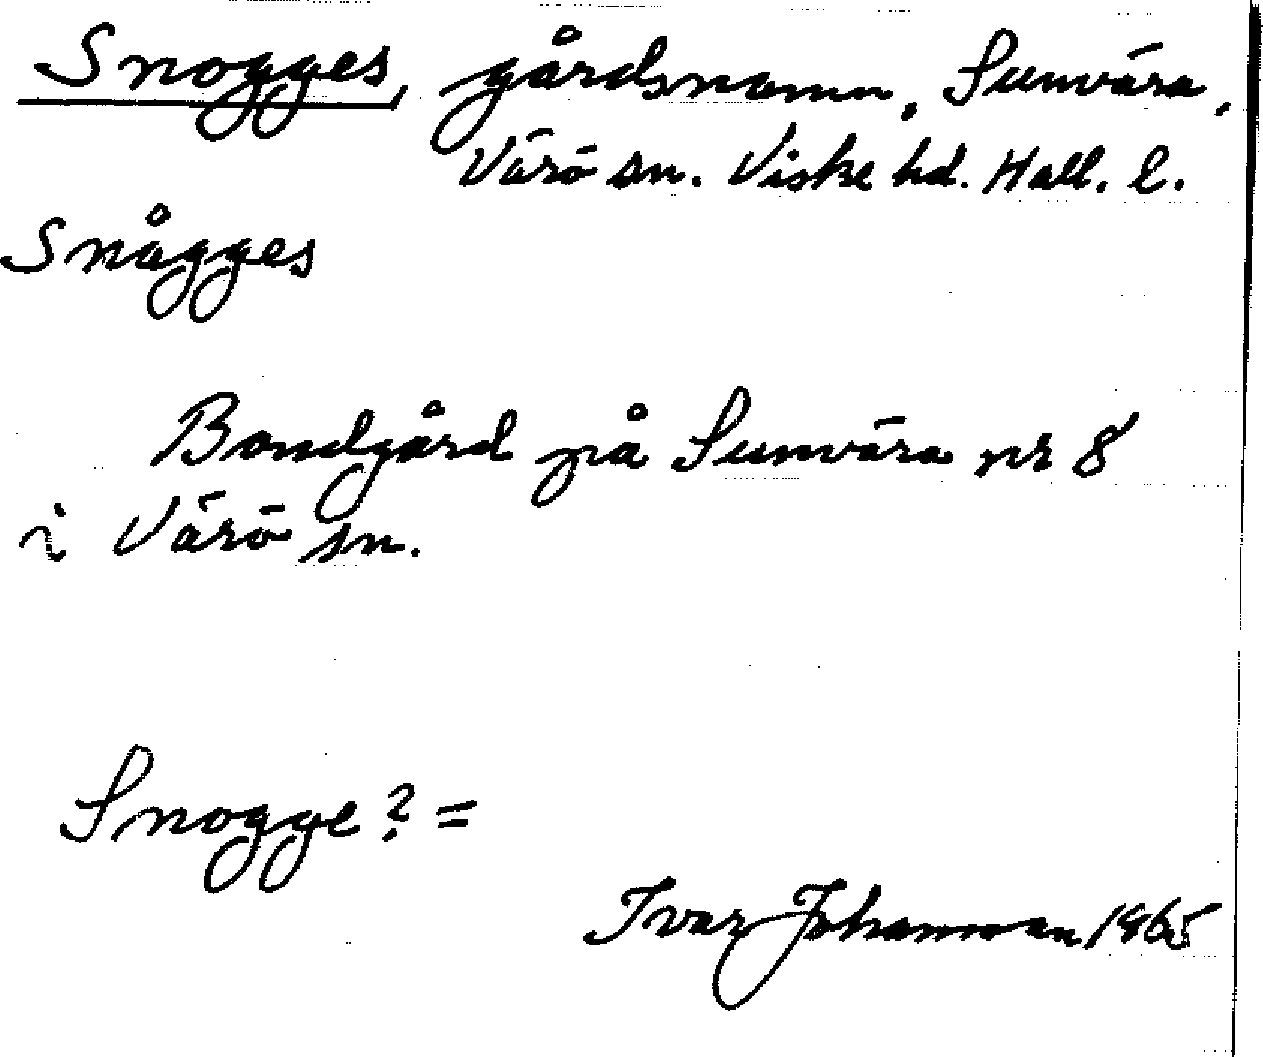 Snogges, gårdsnamn, Sunvära,
Värö sn. Viske hd. Hall. l.
Snågges
Bondgård på Sunvära nr 8
i Värö sn.
Snogge? =
Ivar Johansson 1965